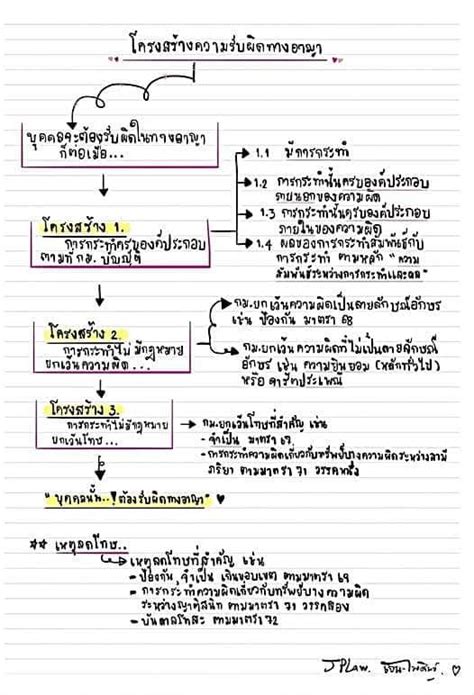 โครงสร้างความรับผิดทางอาญา
บุคคลจะต้องรับผิดในทางอาญา
ก็ต่อเมื่อ...
1.1 มีการกระทำ
1.2 การกระทำนั้นครบองค์ประกอบ
ภายนอกของความผิด
1.3 การกระทำนั้นครบองค์ประกอบ
ภายในของความผิด
1.4 ผลของการกระทำสัมพันธ์กับ
การกระทำ ตามหลัก "ความ
สัมพันธ์ระหว่างการกระทำและผล"
โครงสร้าง 1.
การกระทำครบองค์ประกอบ
ตามที่ กม. บัญญัติ
โครงสร้าง 2.
การกระทำไม่มีกฎหมาย
ยกเว้นความผิด...
กม.ยกเว้นความผิดเป็นลายลักษณ์อักษร
เช่น ป้องกัน มาตรา 68
กม.ยกเว้นความผิดที่ไม่เป็นลายลักษณ์
อักษร เช่น ความยินยอม (หลักทั่วไป)
หรือ จารีตประเพณี
โครงสร้าง 3.
การกระทำไม่มีกฎหมาย
ยกเว้นโทษ...
กม.ยกเว้นโทษที่สำคัญ เช่น
- จำเป็น มาตรา 67
- การกระทำความผิดเกี่ยวกับทรัพย์บางความผิดระหว่างสามี
ภริยา ตามมาตรา 71 วรรคหนึ่ง
"บุคคลนั้น..! ต้องรับผิดทางอาญา" ♥
** เหตุลดโทษ..
เหตุลดโทษที่สำคัญ เช่น
- ป้องกัน, จำเป็น เกินขอบเขต ตามมาตรา 69
- การกระทำความผิดเกี่ยวกับทรัพย์บางความผิด
ระหว่างญาติสนิท ตามมาตรา 71 วรรคสอง
- บันดาลโทสะ ตามมาตรา 72
JPLaw.